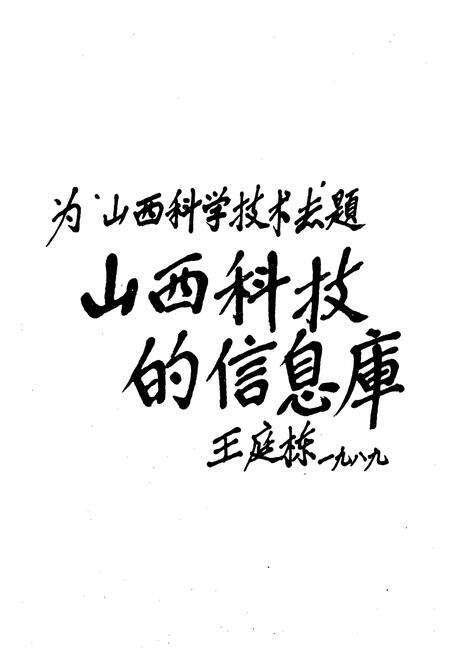 为“山西科学技术志”題
山西科技
的信息庫
王庭栋 一九八九